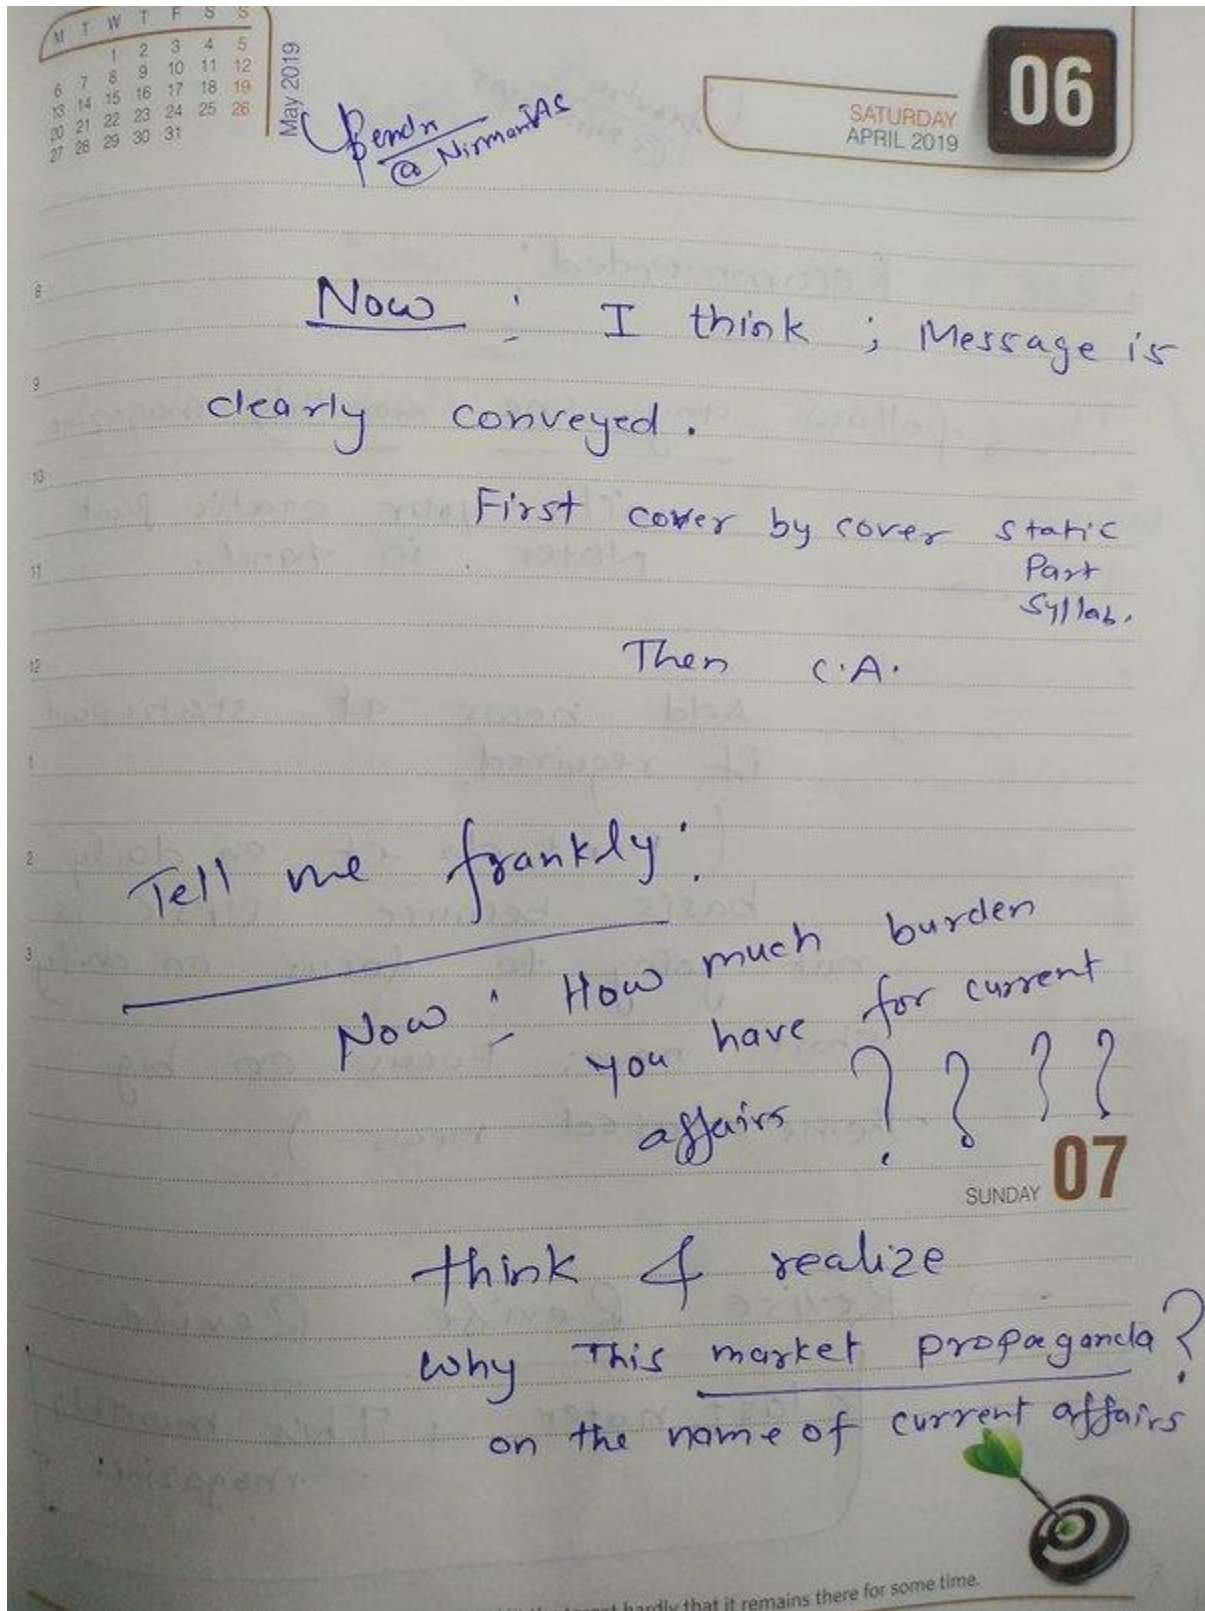 M T W T F S S
1 2 3 4 5
6 7 8 9 10 11 12
13 14 15 16 17 18 19
20 21 22 23 24 25 26
27 28 29 30 31
May 2019
@ NirmanIAS
06
SATURDAY
APRIL 2019
Now : I think ; Message is
clearly conveyed.
First cover by cover static
Part
Syllab.
Then C.A.
Tell me frankly :
Now : How much burden
you have for current
affairs ? ? ? ?
SUNDAY 07
think & realize
why This market propaganda ?
on the name of current affairs
8
9
10
11
12
1
2
3
hardly that it remains there for some time.